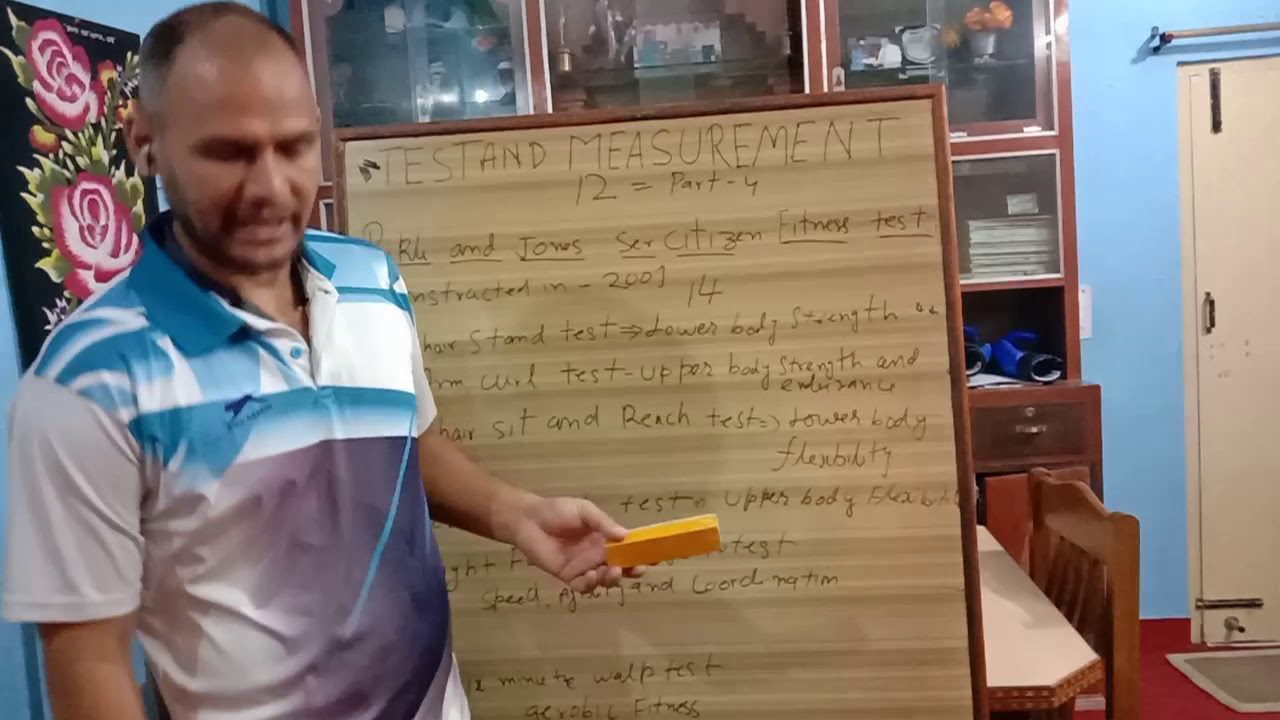 TEST AND MEASUREMENT
12 = Part - 4
Rkli and Jones Ser Citizen Fitness test
nstracted in - 2001 14
hair Stand test ⇒ Lower body Strength
rm curl test = Upper body Strength and
endurance
hair sit and Reach test ⇒ Lower body
flexibility
test = Upper body Flexibili
ght F test
Speed, Agility and Coordination
ix minute walp test
aerobic Fitness